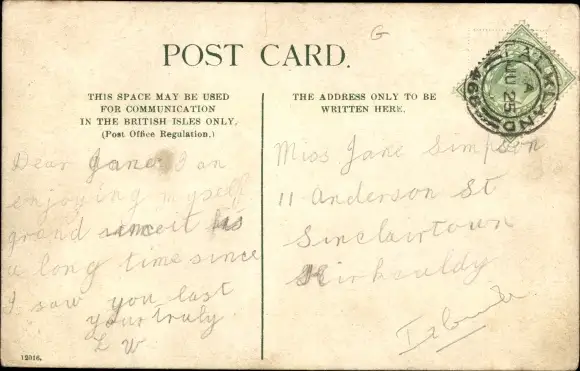 POST CARD.
G
THIS SPACE MAY BE USED
FOR COMMUNICATION
IN THE BRITISH ISLES ONLY.
(Post Office Regulation.)
THE ADDRESS ONLY TO BE
WRITTEN HERE.
FALKLAND
A
JU 25
468
Dear Jane I am
enjoying myself
grand since it is
a long time since
I saw you last
yours truly
L W
Miss Jane Simpson
11 Anderson St
Sinclairtown
Kirkcauldy
12016.